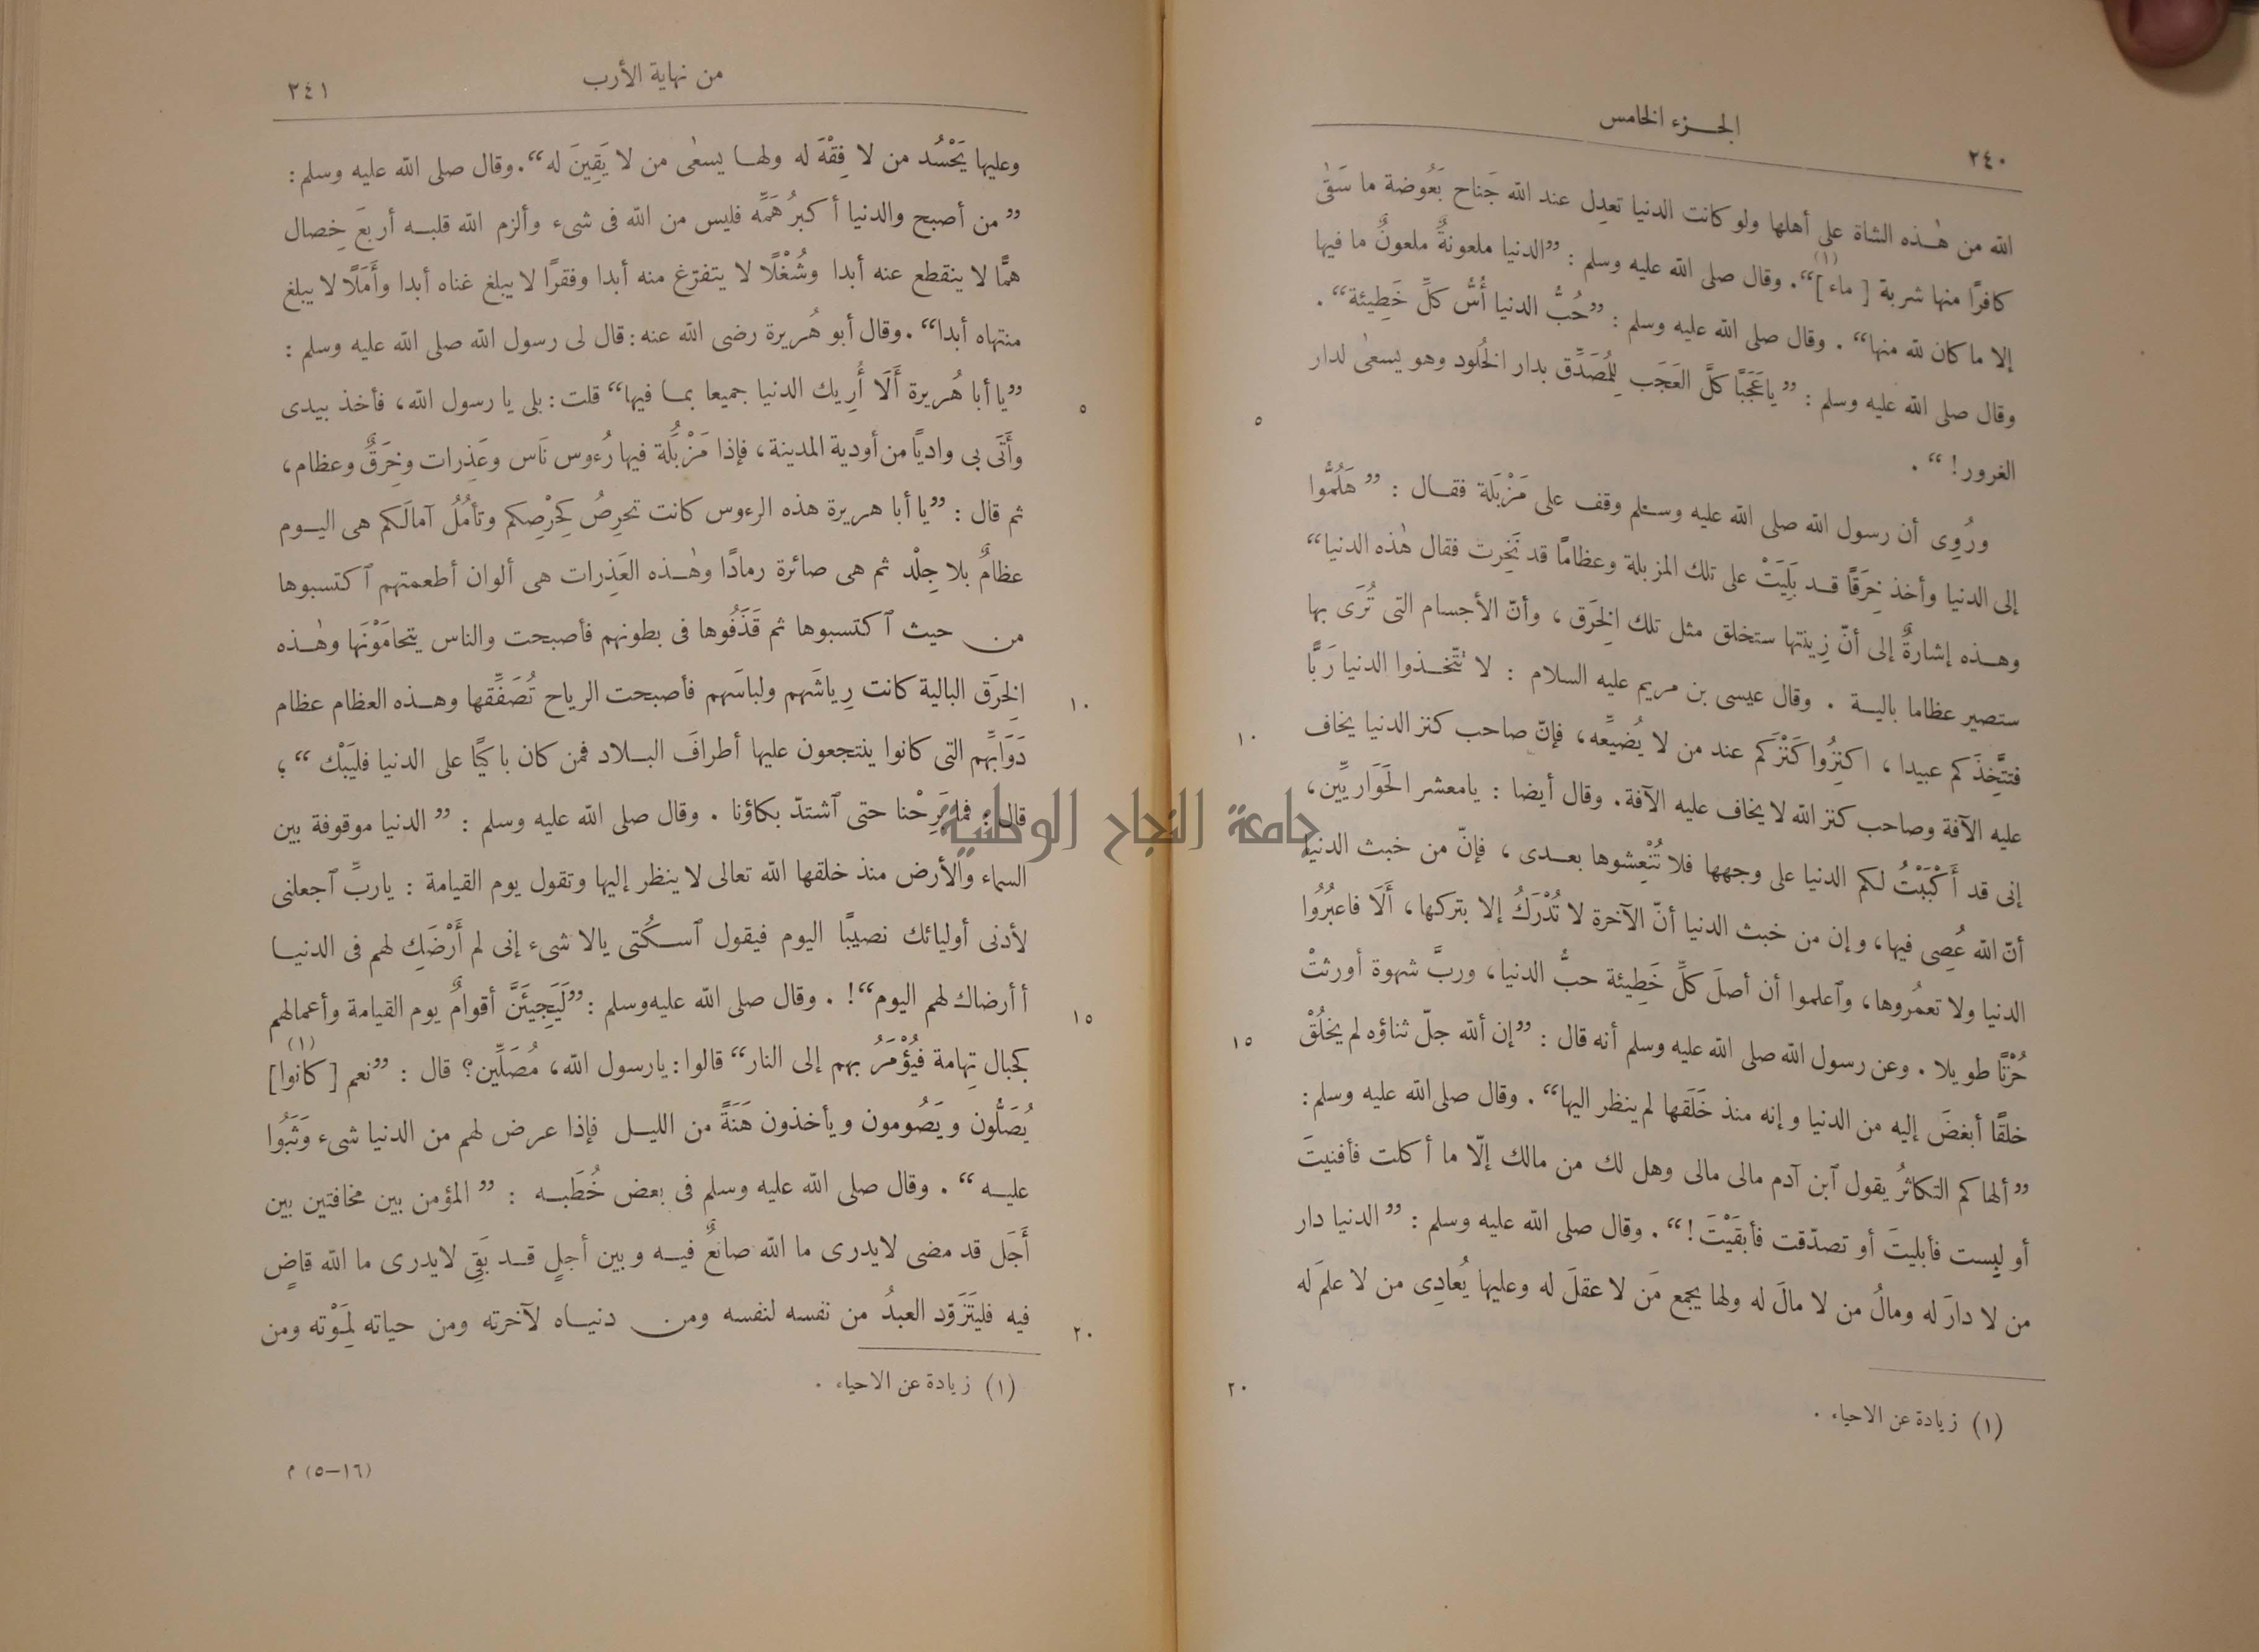 ٢٤٠
الجزء الخامس
الله من هٰذه الشاة على أهلها ولو كانت الدنيا تعدِل عند الله جَناح بَعُوضة ما سَقَى
كافرًا منها شربة [ماء](١)“. وقال صلى الله عليه وسلم : ”الدنيا ملعونةٌ ملعونٌ ما فيها
إلا ما كان لله منها“ . وقال صلى الله عليه وسلم : ”حُبُّ الدنيا أُسُّ كلِّ خَطِيئة“ .
وقال صلى الله عليه وسلم : ”يا عَجَبًا كلَّ العَجَب لِلمُصَدِّق بدار الخُلود وهو يسعىٰ لدار
٥
الغرور! “ .
ورُوِى أن رسول الله صلى الله عليه وسلم وقف على مَزْبَلة فقال : ”هَلُمُّوا
إلى الدنيا وأخذ خِرَقًا قد بَلِيَتْ على تلك المزبلة وعظامًا قد نَخِرت فقال هٰذه الدنيا“
وهذه إشارةٌ إلى أنّ زِينتها ستخلق مثل تلك الِخرَق ، وأنّ الأجسام التى تُرَى بها
ستصير عظاما بالية . وقال عيسى بن مريم عليه السلام : لا تتّخذوا الدنيا رَبًّا
فتتَّخِذَكم عبيدا ، اكنِزُوا كَنْزَكم عند من لا يُضيعِّه، فإنّ صاحب كنز الدنيا يخاف
١٠
عليه الآفة وصاحب كنز الله لا يخاف عليه الآفة. وقال أيضا : يامعشر الحَوَاريِّين،
إنى قد أَكْبَبْتُ لكم الدنيا على وجهها فلا تُنْعِشوها بعدى ، فإنّ من خبث الدنيا
أنّ الله عُصِى فيها، وإن من خبث الدنيا أنّ الآخرة لا تُدْرَكُ إلا بتركها، أَلَا فاعبُرُوا
الدنيا ولا تعمُروها، وٱعلموا أن أصلَ كلِّ خَطِيئة حبُّ الدنيا، وربَّ شهوة أورثتْ
حُزْنًا طويلا . وعن رسول الله صلى الله عليه وسلم أنه قال : ”إن الله جلّ ثناؤه لم يخلُقْ
١٥
خلقًا أبغضَ إليه من الدنيا وإنه منذ خَلَقها لم ينظر اليها“ . وقال صلى الله عليه وسلم :
”ألهاكم التكاثرُ يقول ٱبن آدم مالى مالى وهل لك من مالك إلّا ما أكلت فأفنيتَ
أو لبِست فأبليتَ أو تصدّقت فأبقَيْتَ!“ . وقال صلى الله عليه وسلم : ”الدنيا دار
من لا دارَ له ومالُ من لا مالَ له ولها يجمع مَن لا عقلَ له وعليها يُعادِى من لا علمَ له
٢٠
(١) زيادة عن الاحياء .
من نهاية الأرب
٢٤١
وعليها يَحْسُد من لا فِقْهَ له ولها يسعٰى من لا يَقِينَ له“. وقال صلى الله عليه وسلم :
”من أصبح والدنيا أكبرُ هَمِّه فليس من الله فى شىء وألزم الله قلبه أربعَ خِصال
همًّا لا ينقطع عنه أبدا وشُغْلًا لا يتفرّغ منه أبدا وفقرًا لا يبلغ غناه أبدا وأَمَلًا لا يبلغ
منتهاه أبدا“ . وقال أبو هُريرة رضى الله عنه : قال لى رسول الله صلى الله عليه وسلم :
”يا أبا هُريرة أَلَا أُرِيك الدنيا جميعا بما فيها“ قلت : بلى يا رسول الله، فأخذ بيدى
٥
وأَتَى بى واديًا من أودية المدينة، فإذا مَزْبُلَة فيها رُءوس نَاس وعَذِرات وخِرَقٌ وعظام،
ثم قال : ”يا أبا هريرة هذه الرءوس كانت تحرِصُ كحِرْصِكم وتأمُلُ آمالَكم هى اليوم
عظامٌ بلا جِلْد ثم هى صائرة رمادًا وهٰذه العَذِرات هى ألوان أطعمتهم ٱكتسبوها
من حيث ٱكتسبوها ثم قَذَفُوها فى بطونهم فأصبحت والناس يتحامَوْنَها وهٰذه
الِخرَق البالية كانت رِياشَهم ولباسَهم فأصبحت الرياح تُصَفِّقها وهذه العظام عظام
١٠
دَوَابِّهم التى كانوا ينتجعون عليها أطرافَ البلاد فمن كان باكيًا على الدنيا فليَبْك“ ؛
قال : فما بَرِحْنا حتى ٱشتدّ بكاؤنا . وقال صلى الله عليه وسلم : ”الدنيا موقوفة بين
جامعة النجاح الوطنية
السماء والأرض منذ خلقها الله تعالى لا ينظر إليها وتقول يوم القيامة : ياربِّ ٱجعلنى
لأدنى أوليائك نصيبًا اليوم فيقول ٱسكُتى يالا شىء إنى لم أَرْضَكِ لهم فى الدنيا
أأرضاك لهم اليوم“! . وقال صلى الله عليه وسلم : ”لَيَجِيئَنَّ أقوامٌ يوم القيامة وأعمالهم
١٥
كجبال تِهامة فيُؤْمَرُ بهم إلى النار“ قالوا : يارسول الله، مُصَلِّين؟ قال : ”نعم [كانوا](١)
يُصَلُّون ويَصُومون ويأخذون هَنَةً من الليل فإذا عرض لهم من الدنيا شىء وَثَبُوا
عليه“ . وقال صلى الله عليه وسلم فى بعض خُطَبه : ”المؤمن بين مخافتين بين
أَجَل قد مضى لايدرى ما الله صانعٌ فيه وبين أجلٍ قد بَقِى لايدرى ما الله قاضٍ
فيه فليتَزَوّد العبدُ من نفسه لنفسه ومن دنياه لآخرته ومن حياته لِمَوْته ومن
٢٠
(١) زيادة عن الاحياء .
(١٦–٥) م